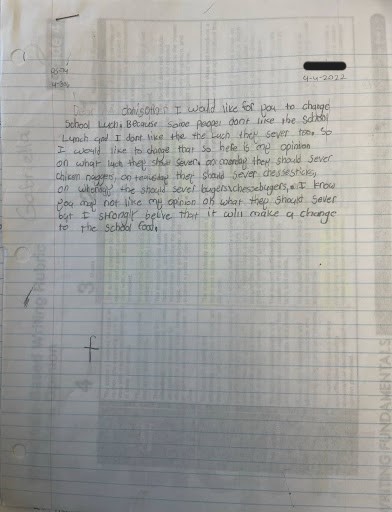 4-4-2022
I would like for you to change
School Luch. Because some peopee dont like the school
Lunch and I dont like the the Luch they sever too, So
I would like to change that so here is my opinion
on what luch they shoe sever. on monday they should sever
chicken nuggets, on tuesday they should sever chessesticks,
on wensday the should sever bugers/chessebugers, I know
you may not like my opinion on what they should sever
but I strongly belive that it will make a change
to the school food.